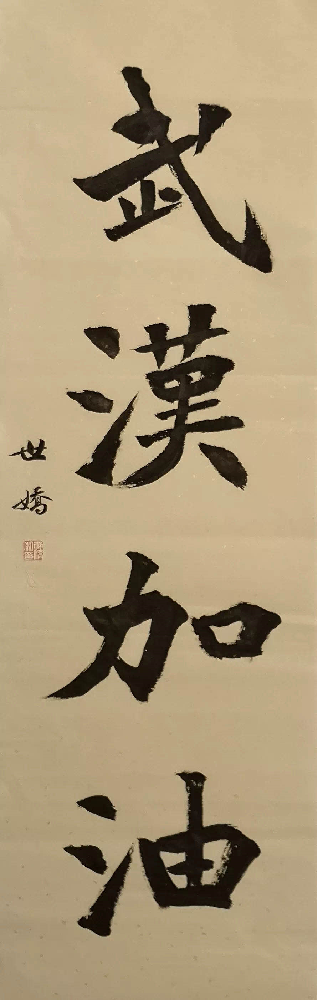 武漢加油
世嬌